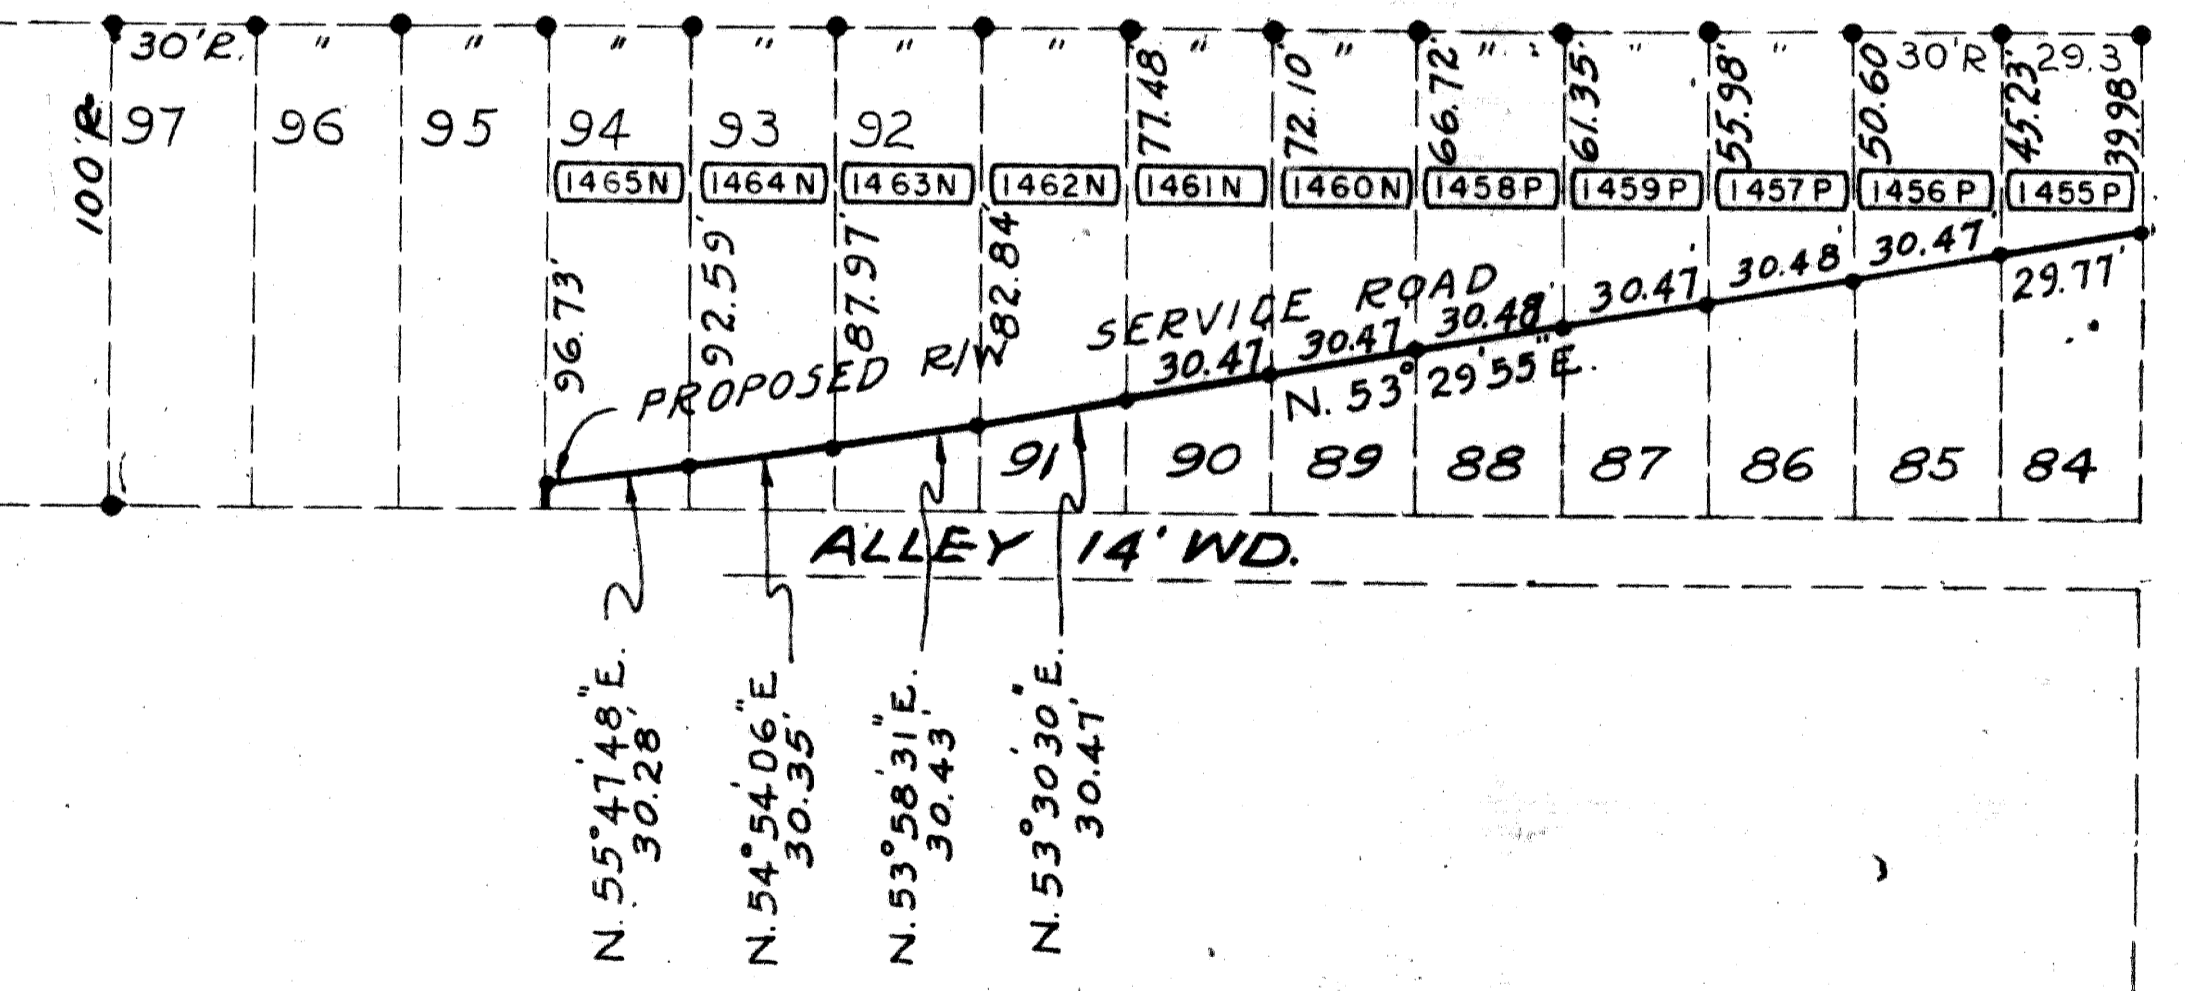 30'R. " " " " " " " " " " " 30'R 29.3
100'R.
97 96 95 94 93 92
77.48' 72.10' 66.72' 61.35' 55.98' 50.60' 45.23' 39.98'
1465N 1464N 1463N 1462N 1461N 1460N 1458P 1459P 1457P 1456P 1455P
96.73' 92.59' 87.97' 82.84'
PROPOSED R/W SERVICE ROAD
30.47 30.47 30.48' 30.47' 30.48' 30.47' 29.77'
N. 53° 29' 55" E.
91 90 89 88 87 86 85 84
ALLEY 14' WD.
N. 55° 47' 48" E.
30.28'
N. 54° 54' 06" E
30.35'
N. 53° 58' 31" E.
30.43'
N. 53° 30' 30" E.
30.47'